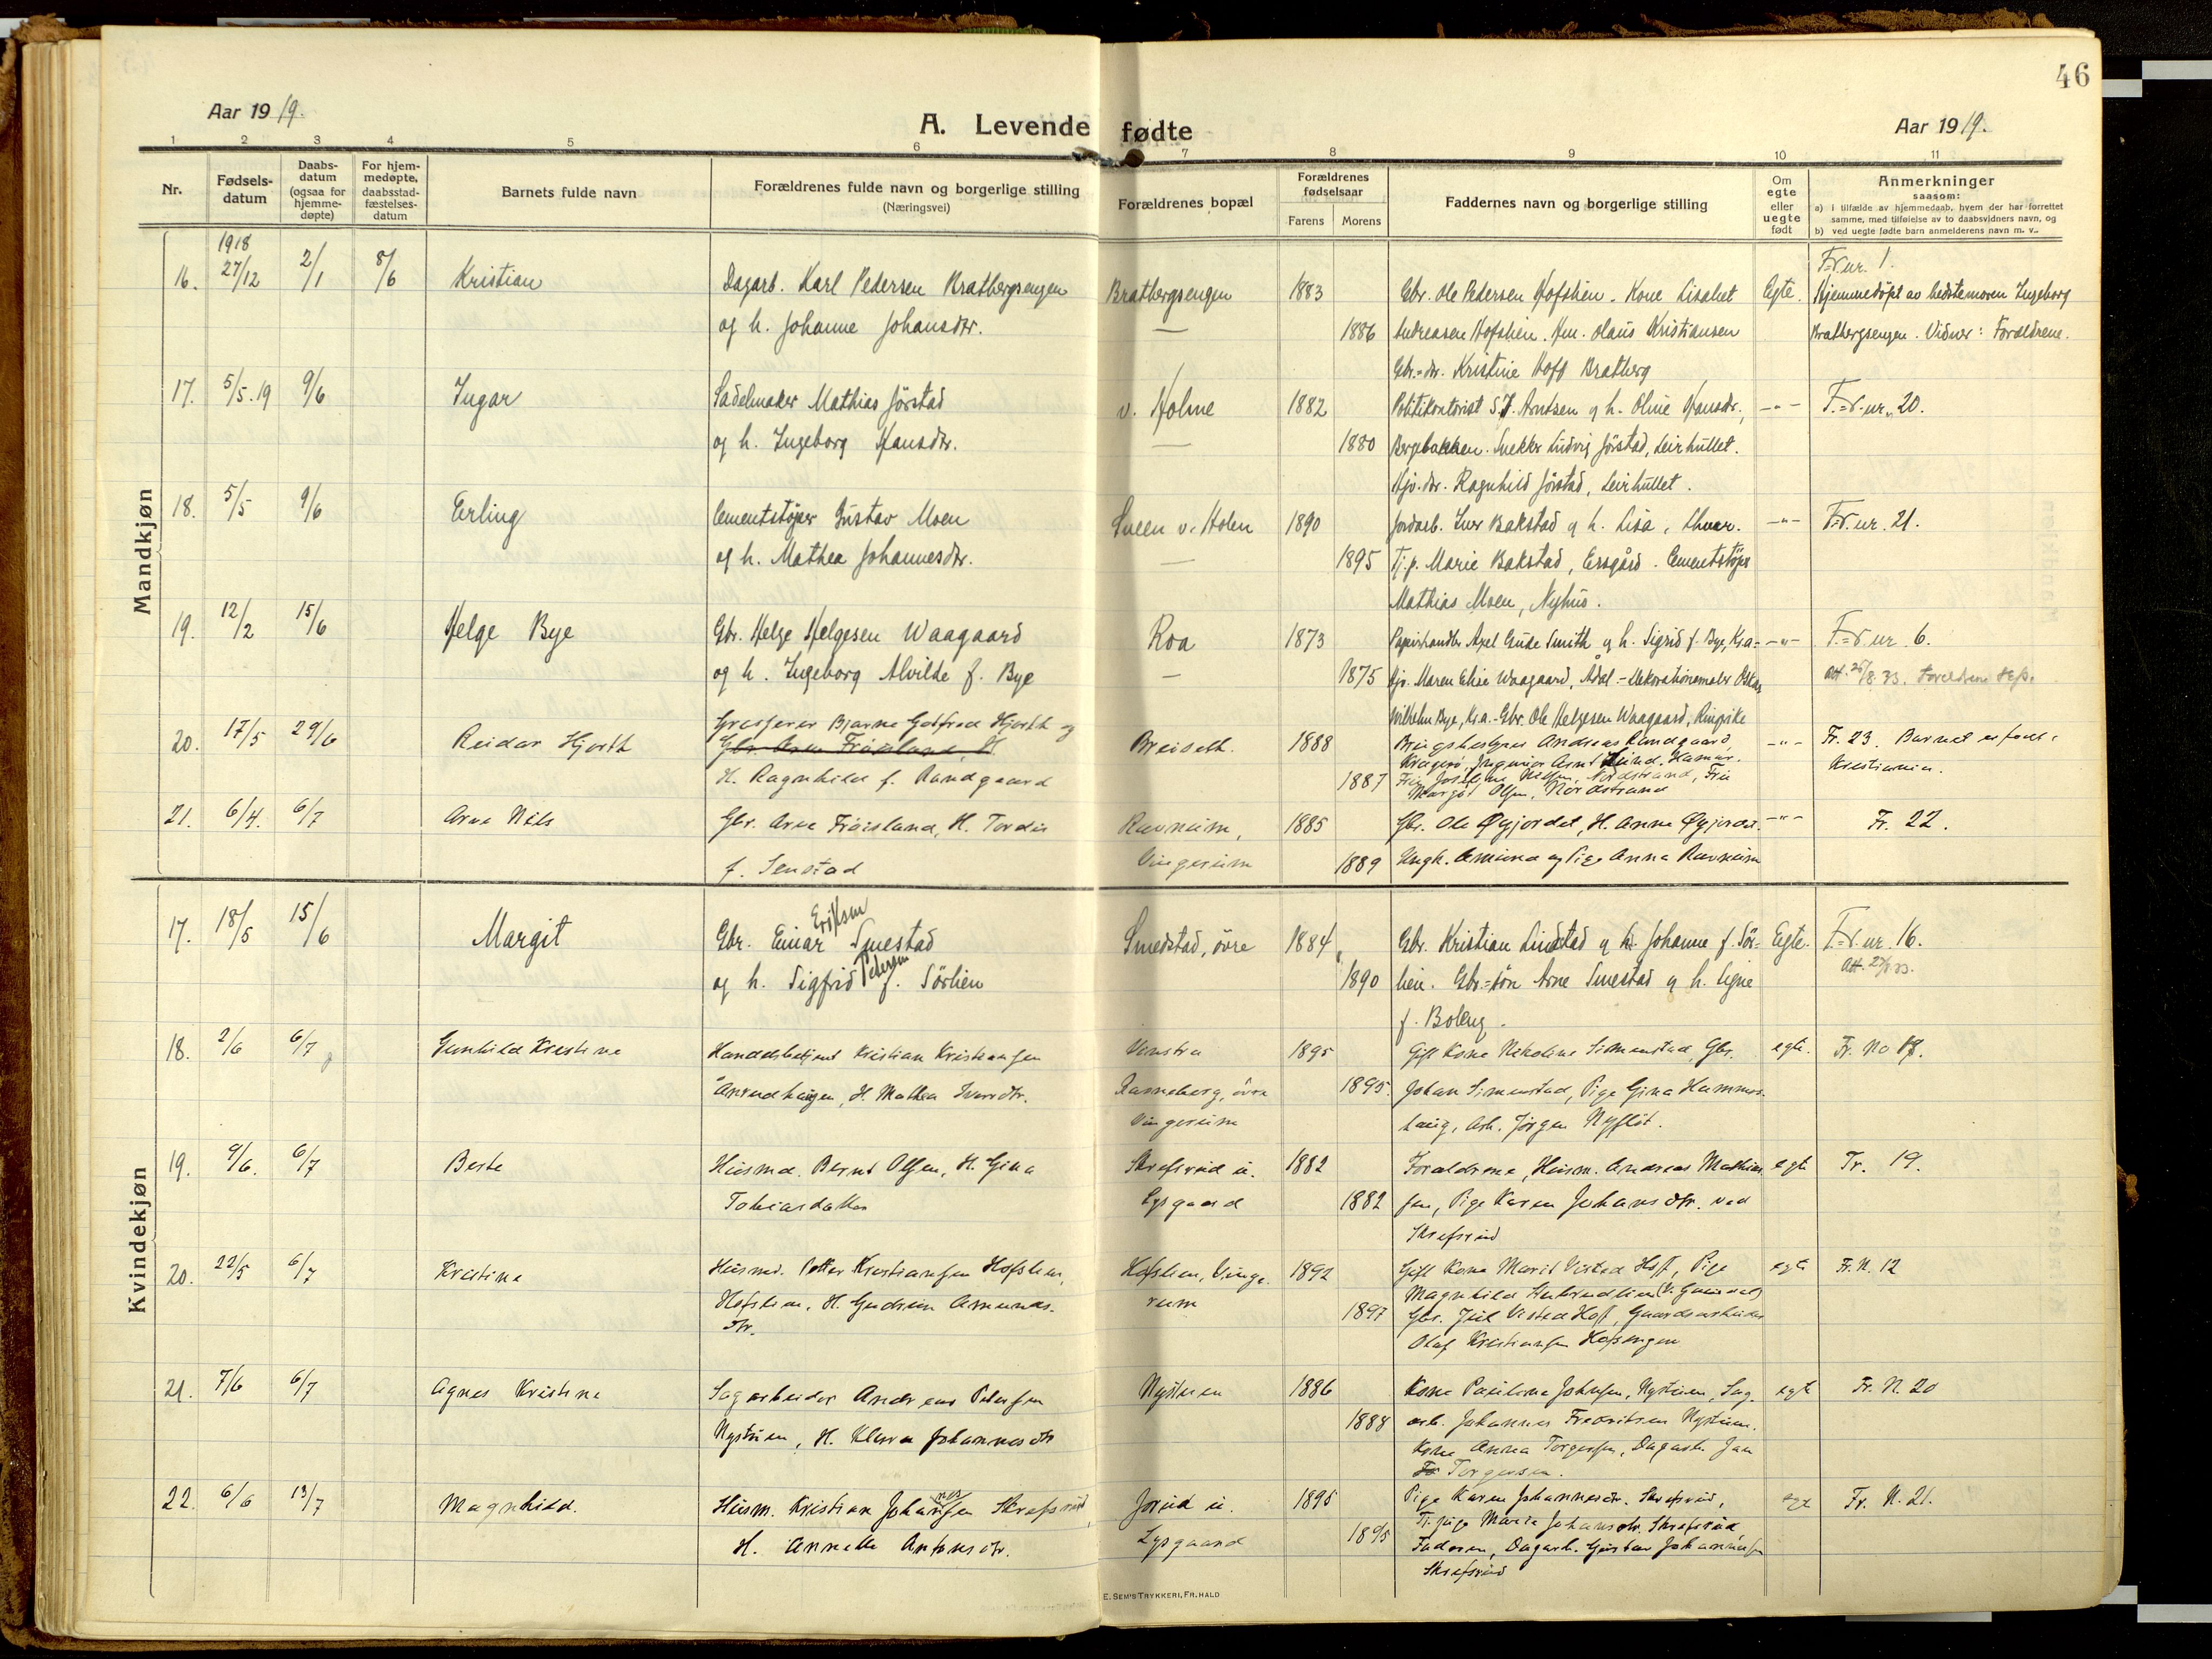 46
Aar 1919.
A. Levende fødte
Aar 1919.
1 2 3 4 5 6 7 8 9 10 11
Nr.
Fødsels-
datum
Daabs-
datum
(ogsaa for
hjemme-
døpte)
For hjem-
medøpte,
daabsstad-
fæstelses-
datum
Barnets fulde navn
Forældrenes fulde navn og borgerlige stilling
(Næringsvei)
Forældrenes bopæl
Forældrenes
fødselsaar
Farens Morens
Faddernes navn og borgerlige stilling
Om
egte
eller
uegte
født
Anmerkninger
saasom:
a) i tilfælde av hjemmedaab, hvem der har forrettet
samme, med tilføielse av to daabsvidners navn, og
b) ved uegte fødte barn anmelderens navn m. v..
Mandkjøn
1918 F=r. nr. 1.
16. 27/12 2/1 8/6 Kristian Dagarb. Karl Pedersen Bratbergsengen Bratbergsengen 1883 Gbr. Ole Pedersen Hofslien. Kone Lisabet Egte. Hjemmedöpt av bedstemoren Ingeborg
og h. Johanne Johansdtr. — 1886 Andreasen Hofslien. Hm. Olaus Kristiansen Bratbergsengen. Vidner: Forældrene.
Gbr.-dtr. Kristine Hoff Bratberg
17. 5/5.19 9/6 Ingar Sadelmaker Mathias Jörstad v. Holme 1882 Politikontorist S. J. Arntsen og h. Oline Hansdtr., -"- F.=r. nr. 20.
og h. Ingeborg Hansdtr. — 1880 Bergebakken. Snekker Ludvig Jörstad, Leirhullet.
Hjv. dtr. Ragnhild Jörstad, Leirhullet.
18. 5/5 9/6 Erling Cementstöper Gustav Moen Sveen v. Holen 1890 Jordarb. Iver Bakstad og h. Lisa, -"- F.=r. nr. 21.
og h. Mathea Johannesdtr. — 1895 Tj.p. Marie Bakstad, Ersgård. Cementstöper
Mathias Moen, Nyhus.
19. 12/2 15/6 Helge Bye Gbr. Helge Helgesen Waagaard Roa 1873 Papirhandler Axel Gude Smith og h. Sigrid f. Bye, Kr.a- -"- F.=r. nr. 6.
og h. Ingeborg Alvilde f. Bye — 1875 Hjv. Maren Elise Waagaard, Ådal.- Dekorationsmaler Oskar Att. 25/8.33.
Wilhelm Bye, Kr.a.- Gbr. Ole Helgesen Waagaard, Ringrike
20. 17/5 29/6 Reidar Hjorth Bjarne Gotfred Hjorth og Breiseth. 1888 Andreas Randgaard, -"- Fr. 23. Barnet er födt i
Gbr. Arne Fröisland, H. Kragerö, Ingeniör Arnt Lund, Hamar. Kristiania.
H. Ragnhild f. Randgaard 1887 Fru Josefine Nordstrand, Fru
Margot Olsen, Nordstrand
21. 6/4. 6/7 Arne Nils Gbr. Arne Fröisland, H. Tordis Ravnum, 1885 Gbr. Ole Øygjordet, H. Anna Øygjordet. -"- Fr. 22.
f. Senstad Vingrum 1889 Ungk. Amund og Pige Anna Ravnum
Kvindekjøn
17. 18/5 15/6 Margit Gbr. Einar Eriksen Smestad Smedstad, övre 1884 Gbr. Kristian Lindstad og h. Johanne f. Sör- Egte. F.=r. nr. 16.
og h. Sigfrid Pedersen f. Sörlien 1890 lien. Gbr.=sön Arne Smestad og h. Signe
f. Boleng.
18. 2/6 6/7 Gunhild Kristine Handelsbetjent Kristian Kristiansen Vinstra 1895 Gift Kone Nikoline Simenstad, Gbr. egte. Fr. No 18.
H. Mathea Iversdtr. Ranneberg, övre 1895. Johan Simenstad, Pige Gina Hammers-
Vingrum haug, Arb. Jörgen Nyflöt.
19. 9/6. 6/7 Berte Husmd. Bernt Olsen, H. Gina Skrefsrud u. 1882 Forældrene, Husm. Andreas Mathias- egte Fr. 19.
Tobiasdatter Lysgaard 1882 sen, Pige Karen Johansdtr. ved
Skrefsrud
20. 22/5 6/7 Kristine Husmd. Petter Kristiansen Hofslien, Hofslien, Ving- 1892 Gift Kone Marit Vestad Hoff, Pige egte Fr. N. 12
Hofslien, H. Gudrun Amunds- rum Magnhild
dtr. 1897 Gbr. Juel Vestad Hoff, Gaardsarbeider
Olaf Kristiansen Hofsengen
21. 7/6 6/7 Agnes Kristine Sagarbeider Andreas Pedersen Nystuen 1886 Kone Pauline Johnsen, Nystuen, Sag- egte Fr. N. 20
Nystuen, H. Klara Johannesdtr 1888 arb. Johannes Fredriksen Nystuen.
Kone Anna Torgersen, Dagarb. Jan
Torgersen.
22. 6/6 13/7 Magnhild. Husm. Kristian Johansen Skrefsrud, Jorud u. 1895 Pige Karen Johannesdtr. Skrefsrud, egte Fr. N. 21.
H. Annette Antonsdtr. Lysgaard 1895 Tj. pige Marie Johansdtr. Skrefsrud,
Faderen, Dagarb. Gustav Johannesen
Skrefsrud
E. SEM'S TRYKKERI, FR.HALD